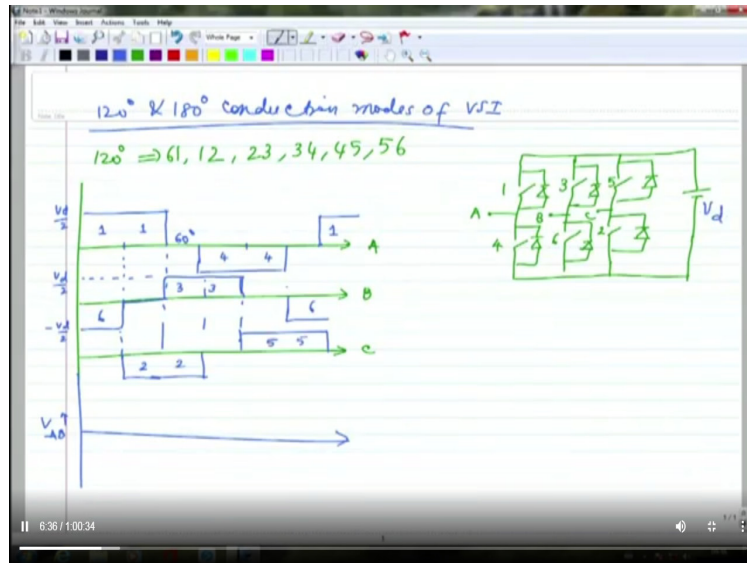 Note1 - Windows Journal
File Edit View Insert Actions Tools Help
Whole Page
Note Title
120° & 180° conduction modes of VSI
120° ⇒ 61, 12, 23, 34, 45, 56
1 3 5
A B C
4 6 2
Vd
Vd/2 1 1 60° 4 4 1 A
Vd/2 3 3 B
-Vd/2 6 6
2 2 5 5 C
VAB
1/1
6:36 / 1:00:34